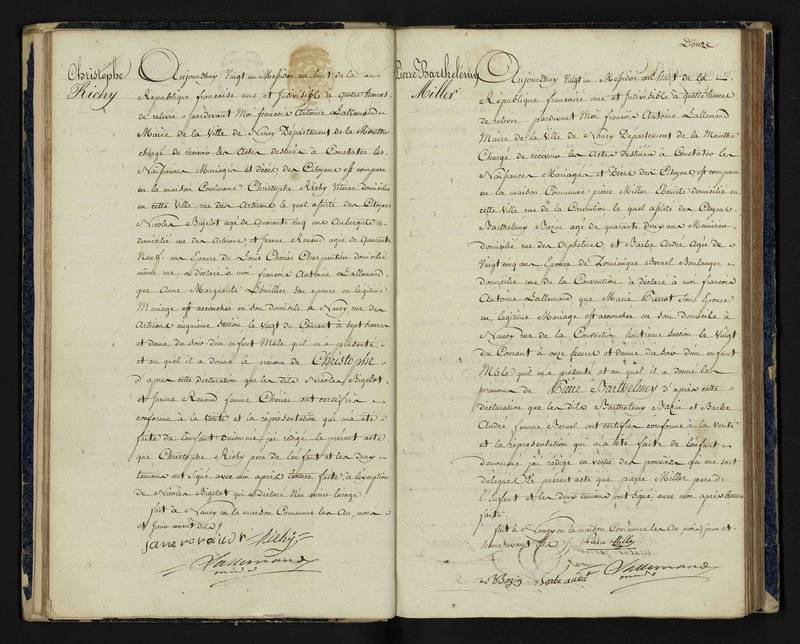 Christophe
Richy
Aujourdhuy Vingt un Messidor an huit de la
Republique francaise une et Indivisible à quatre heures
de relevée pardevant Moi francois Antoine Lallemand
Maire de la Ville de Nancy Departement de la Meurthe
chargé de recevoir les Actes destinés à Constater les
Naissances Mariages et décès des Citoyens est comparu
en la maison Commune Christophe Richy Vitrier domicilié
en cette Ville rue des Artisans le quel assisté des Citoyens
Nicolas Bigelot agé de Quarante cinq ans Aubergiste
domicilié rue des Artisans et Jeanne Renaud agée de Quarante
Neuf ans Epouse de Louis Cherier Charpentier domicilié
même rue, a Declaré à moi francois Antoine Lallemand
que Anne Marguerite Lhuillier Son epouse en legitime
Mariage est accouchée en son domicile à Nancy rue des
Artisans cinquieme section le Vingt du Courant à sept heures
et demie du soir d'un enfant Mâle qu'il m'a présenté
et au quel il a donné le prénom de Christophe
d'apres cette déclaration que les dits Nicolas Bigelot
et Jeanne Renaud femme Cherier ont certifié
conforme à la vérité et la représentation qui m'a été
faite de l'enfant denommé, j'ai rédigé le présent acte
que Christophe Richy pere de l'enfant et les deux
temoins ont signé avec moi après lecture faite, à l'exception
de Nicolas Bigelot qui a declaré n'en avoir lusage
fait à Nancy en la maison Commune les An, mois
et jour avant dits
Richy
Lallemand
maire
Douze
Pierre Barthelémy
Miller
Aujourdhuy Vingt un Messidor an huit de la
République francaise une et Indivisible à quatre heures
de relevée pardevant moi francois Antoine Lallemand
Maire de la Ville de Nancy Departement de la Meurthe
Chargé de recevoir les Actes destinés à Constater les
Naissances Mariages et Décès des Citoyens est comparu
en la maison Commune pierre Miller Ebeniste domicilié en
cette Ville rue de la Convention le quel assisté des Citoyens
Barthelemy agé de quarante deux ans Menuisier
domicilié rue des Orphelines et Barbe André Agée de
Vingt cinq ans Epouse de Dominique Boulanger
domicilié rue de la Convention à déclaré à moi francois
Antoine Lallemand que Marie Pierrot Son Epouse
en legitime Mariage est accouchée en son Domicile à
Nancy rue de la Convention huitieme section le Vingt
du Courant à onze heures et demie du soir d'un enfant
Mâle qu'il m'a présenté et au quel il a donné les
prénoms de Pierre Barthelemy d'après cette
déclaration que les dits Barthelemy et Barbe
André femme ont certifié conforme à la vérité
et la représentation qui m'a été faite de l'enfant
denommé, j'ai rédigé en vertu des pouvoirs qui me sont
délégués le présent acte que pierre Miller pere de
l'Enfant et les deux temoins ont signé avec moi après lecture
faite.
fait à Nancy en la maison Commune les an, mois, jour et
avant dits
Pierre Miller
Barbe andré
Lallemand
maire